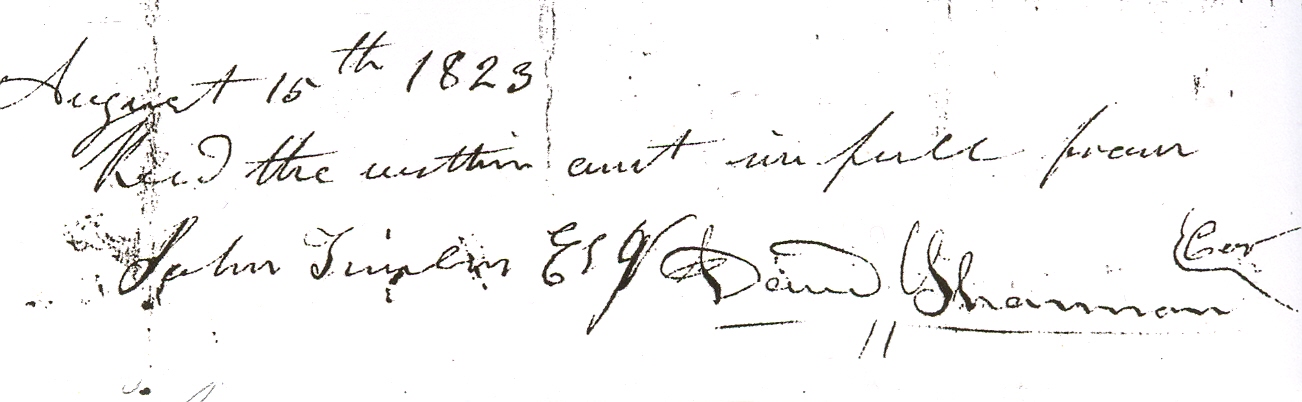 August 15th 1823
Recd the within amt in full from
John Esqr David Shannon